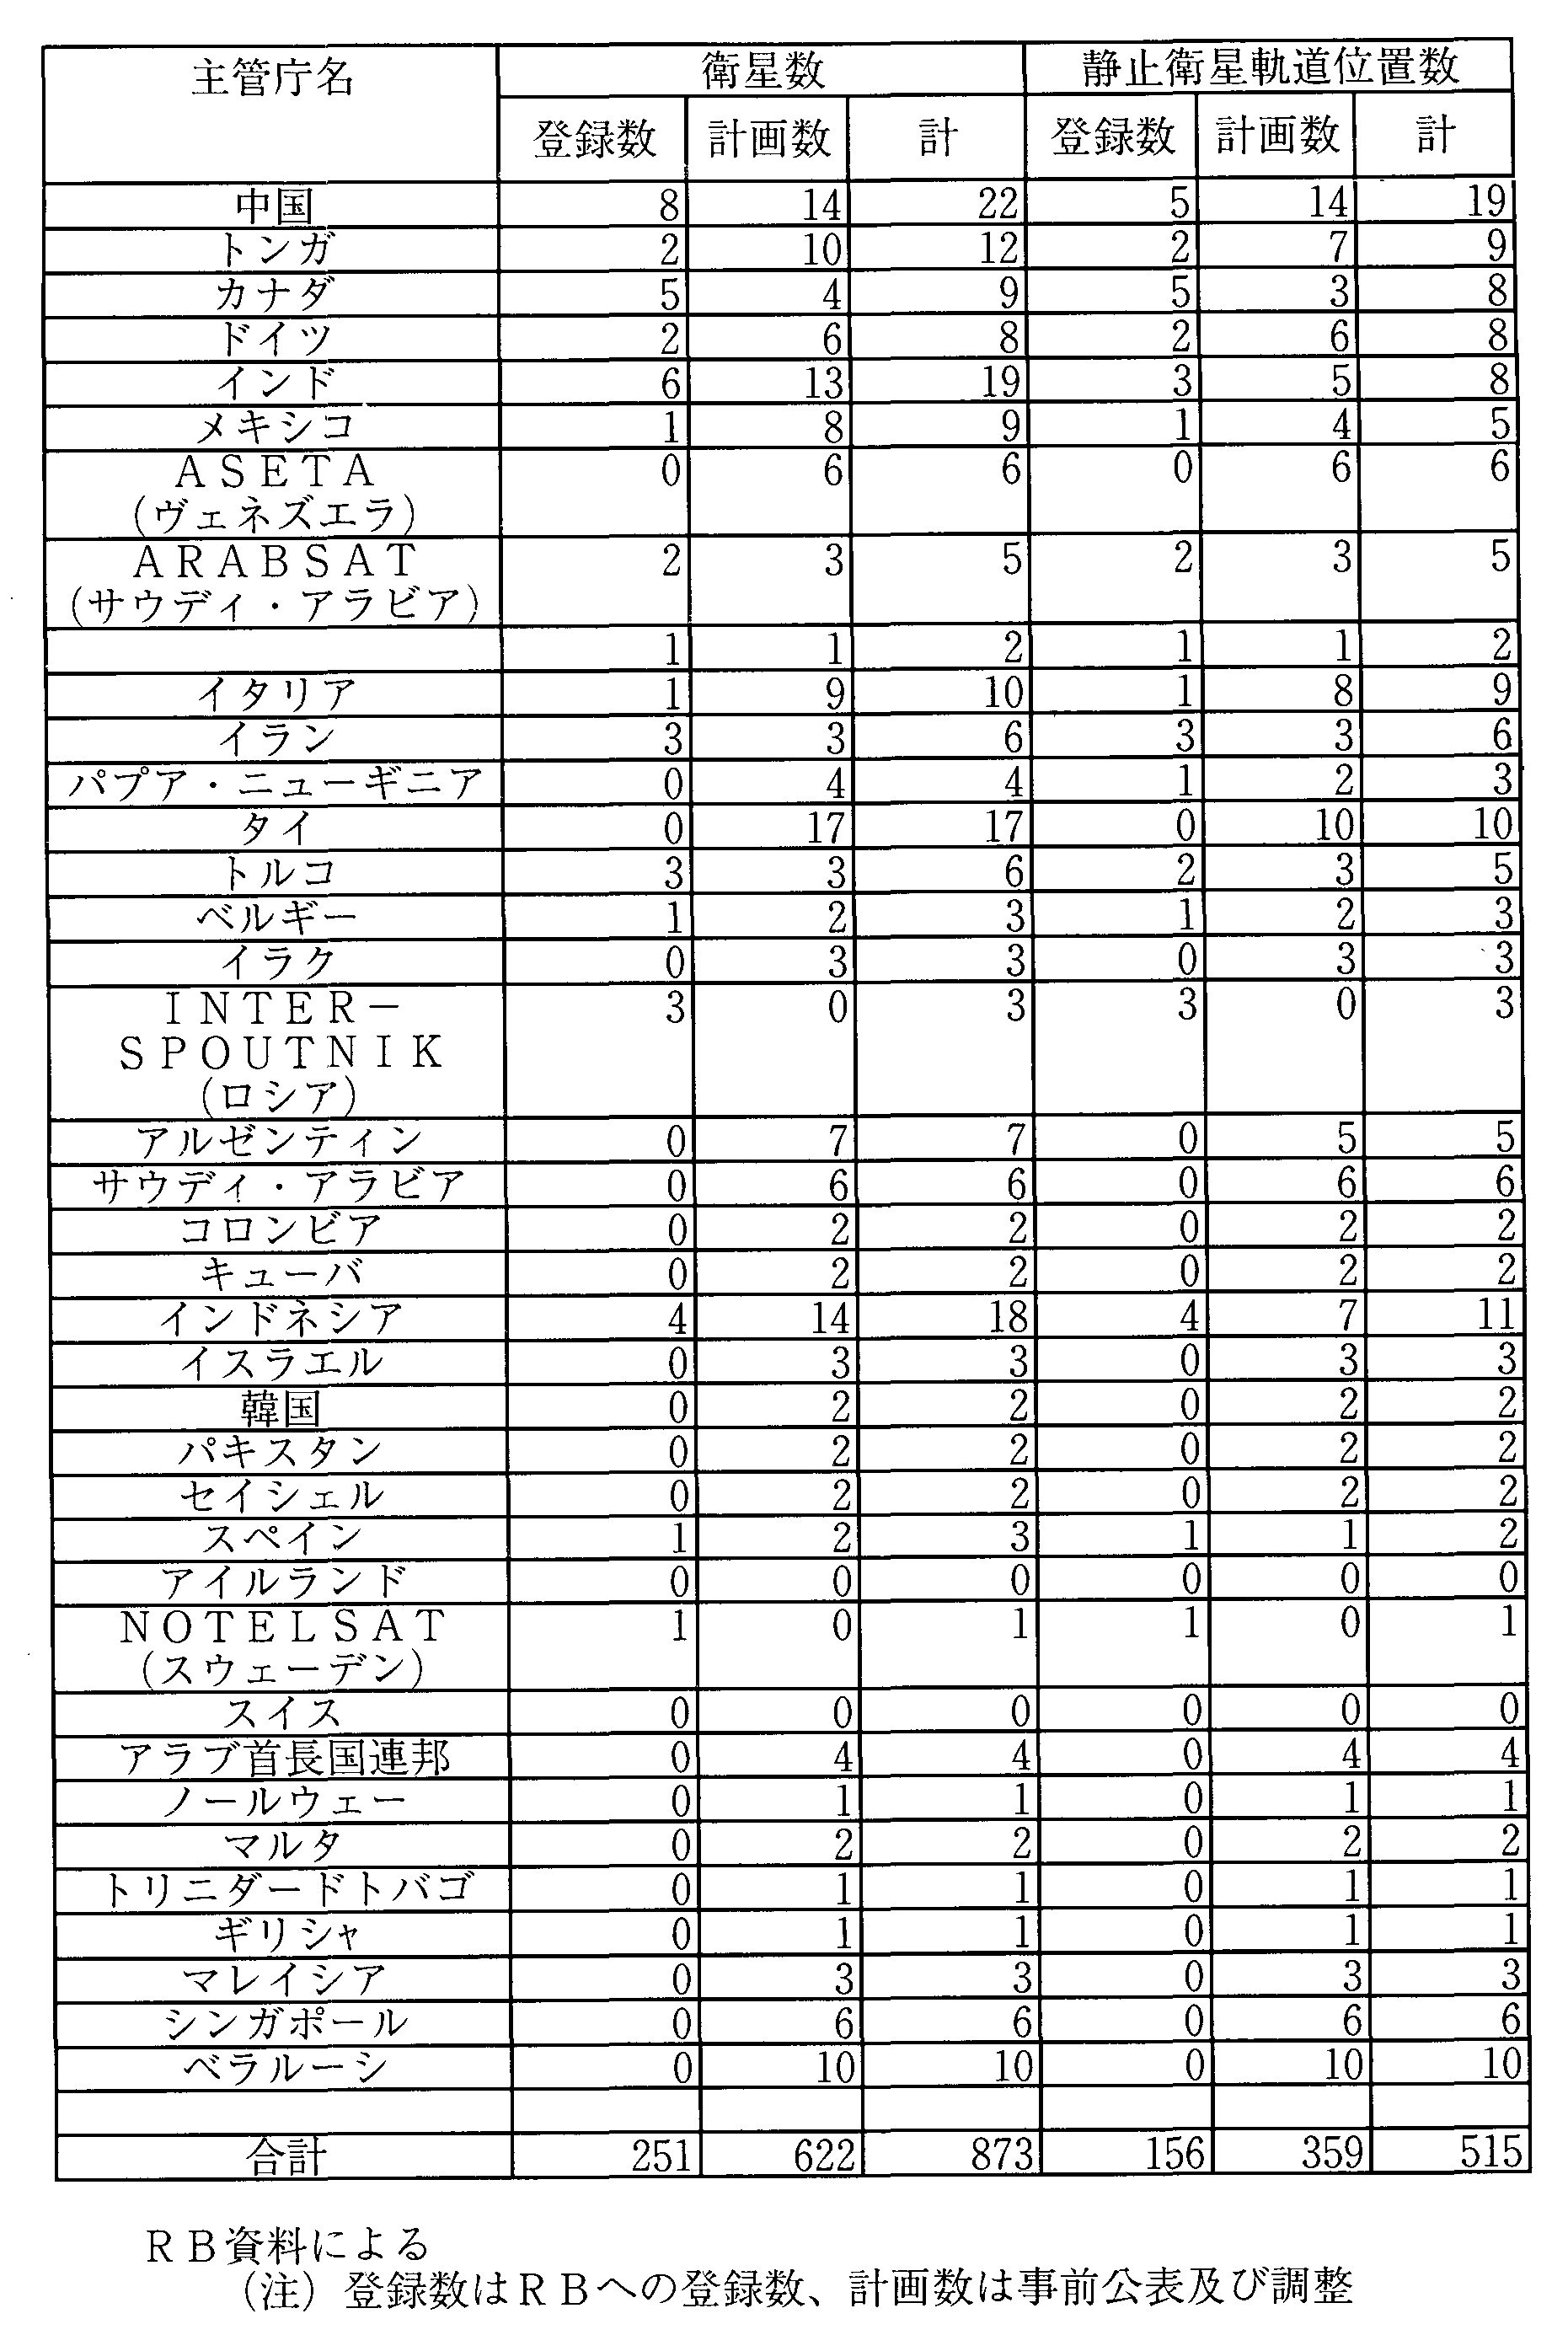 主管庁名 衛星数 静止衛星軌道位置数
登録数 計画数 計 登録数 計画数 計
中国 8 14 22 5 14 19
トンガ 2 10 12 2 7 9
カナダ 5 4 9 5 3 8
ドイツ 2 6 8 2 6 8
インド 6 13 19 3 5 8
メキシコ 1 8 9 1 4 5
ASETA 0 6 6 0 6 6
(ヴェネズエラ)
ARABSAT 2 3 5 2 3 5
(サウディ・アラビア)
1 1 2 1 1 2
イタリア 1 9 10 1 8 9
イラン 3 3 6 3 3 6
パプア・ニューギニア 0 4 4 1 2 3
タイ 0 17 17 0 10 10
トルコ 3 3 6 2 3 5
ベルギー 1 2 3 1 2 3
イラク 0 3 3 0 3 3
INTER- 3 0 3 3 0 3
SPOUTNIK
(ロシア)
アルゼンティン 0 7 7 0 5 5
サウディ・アラビア 0 6 6 0 6 6
コロンビア 0 2 2 0 2 2
キューバ 0 2 2 0 2 2
インドネシア 4 14 18 4 7 11
イスラエル 0 3 3 0 3 3
韓国 0 2 2 0 2 2
パキスタン 0 2 2 0 2 2
セイシェル 0 2 2 0 2 2
スペイン 1 2 3 1 1 2
アイルランド 0 0 0 0 0 0
NOTELSAT 1 0 1 1 0 1
(スウェーデン)
スイス 0 0 0 0 0 0
アラブ首長国連邦 0 4 4 0 4 4
ノールウェー 0 1 1 0 1 1
マルタ 0 2 2 0 2 2
トリニダードトバゴ 0 1 1 0 1 1
ギリシャ 0 1 1 0 1 1
マレイシア 0 3 3 0 3 3
シンガポール 0 6 6 0 6 6
ベラルーシ 0 10 10 0 10 10
合計 251 622 873 156 359 515
RB資料による
(注) 登録数はRBへの登録数、計画数は事前公表及び調整